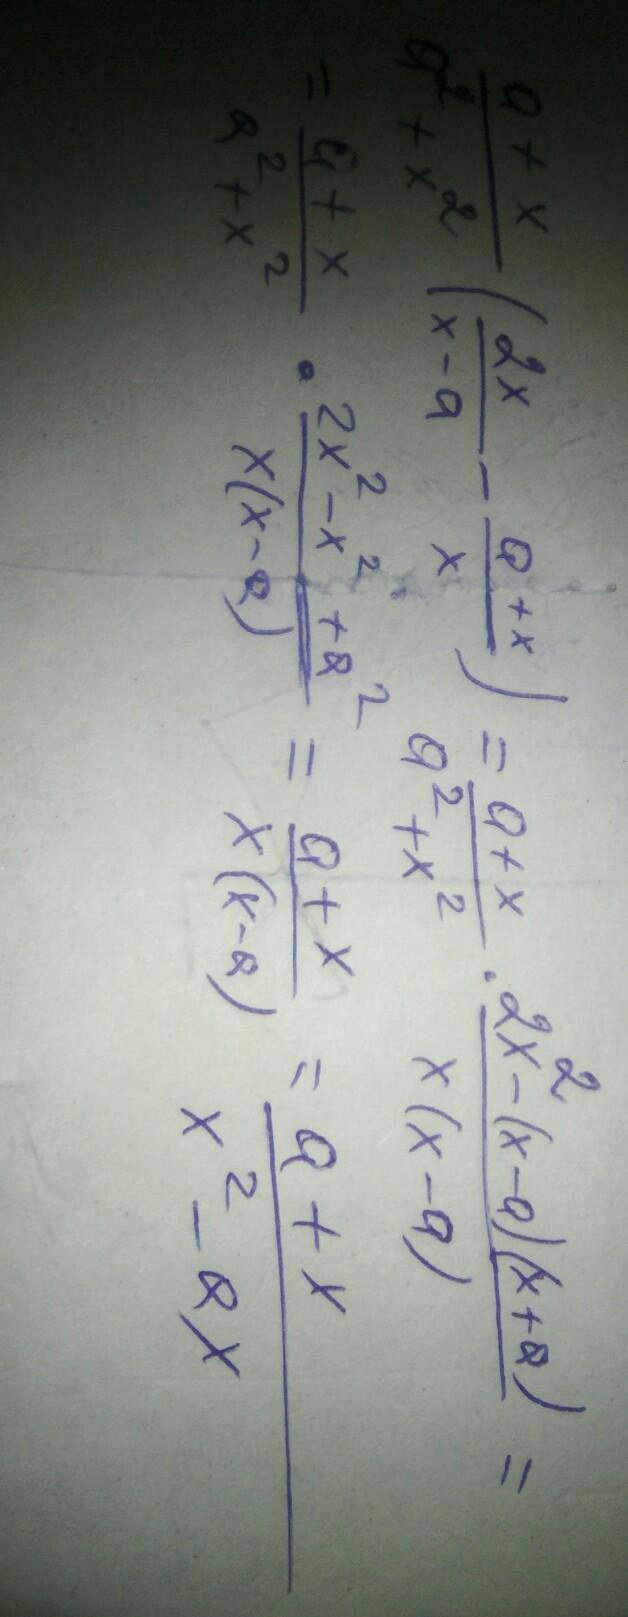 \frac{a+x}{a^2+x^2} \left( \frac{2x}{x-a} - \frac{a+x}{x} \right) = \frac{a+x}{a^2+x^2} \cdot \frac{2x^2-(x-a)(x+a)}{x(x-a)} =
= \frac{a+x}{a^2+x^2} \cdot \frac{2x^2-x^2+a^2}{x(x-a)} = \frac{a+x}{x(x-a)} = \frac{a+x}{x^2-ax}